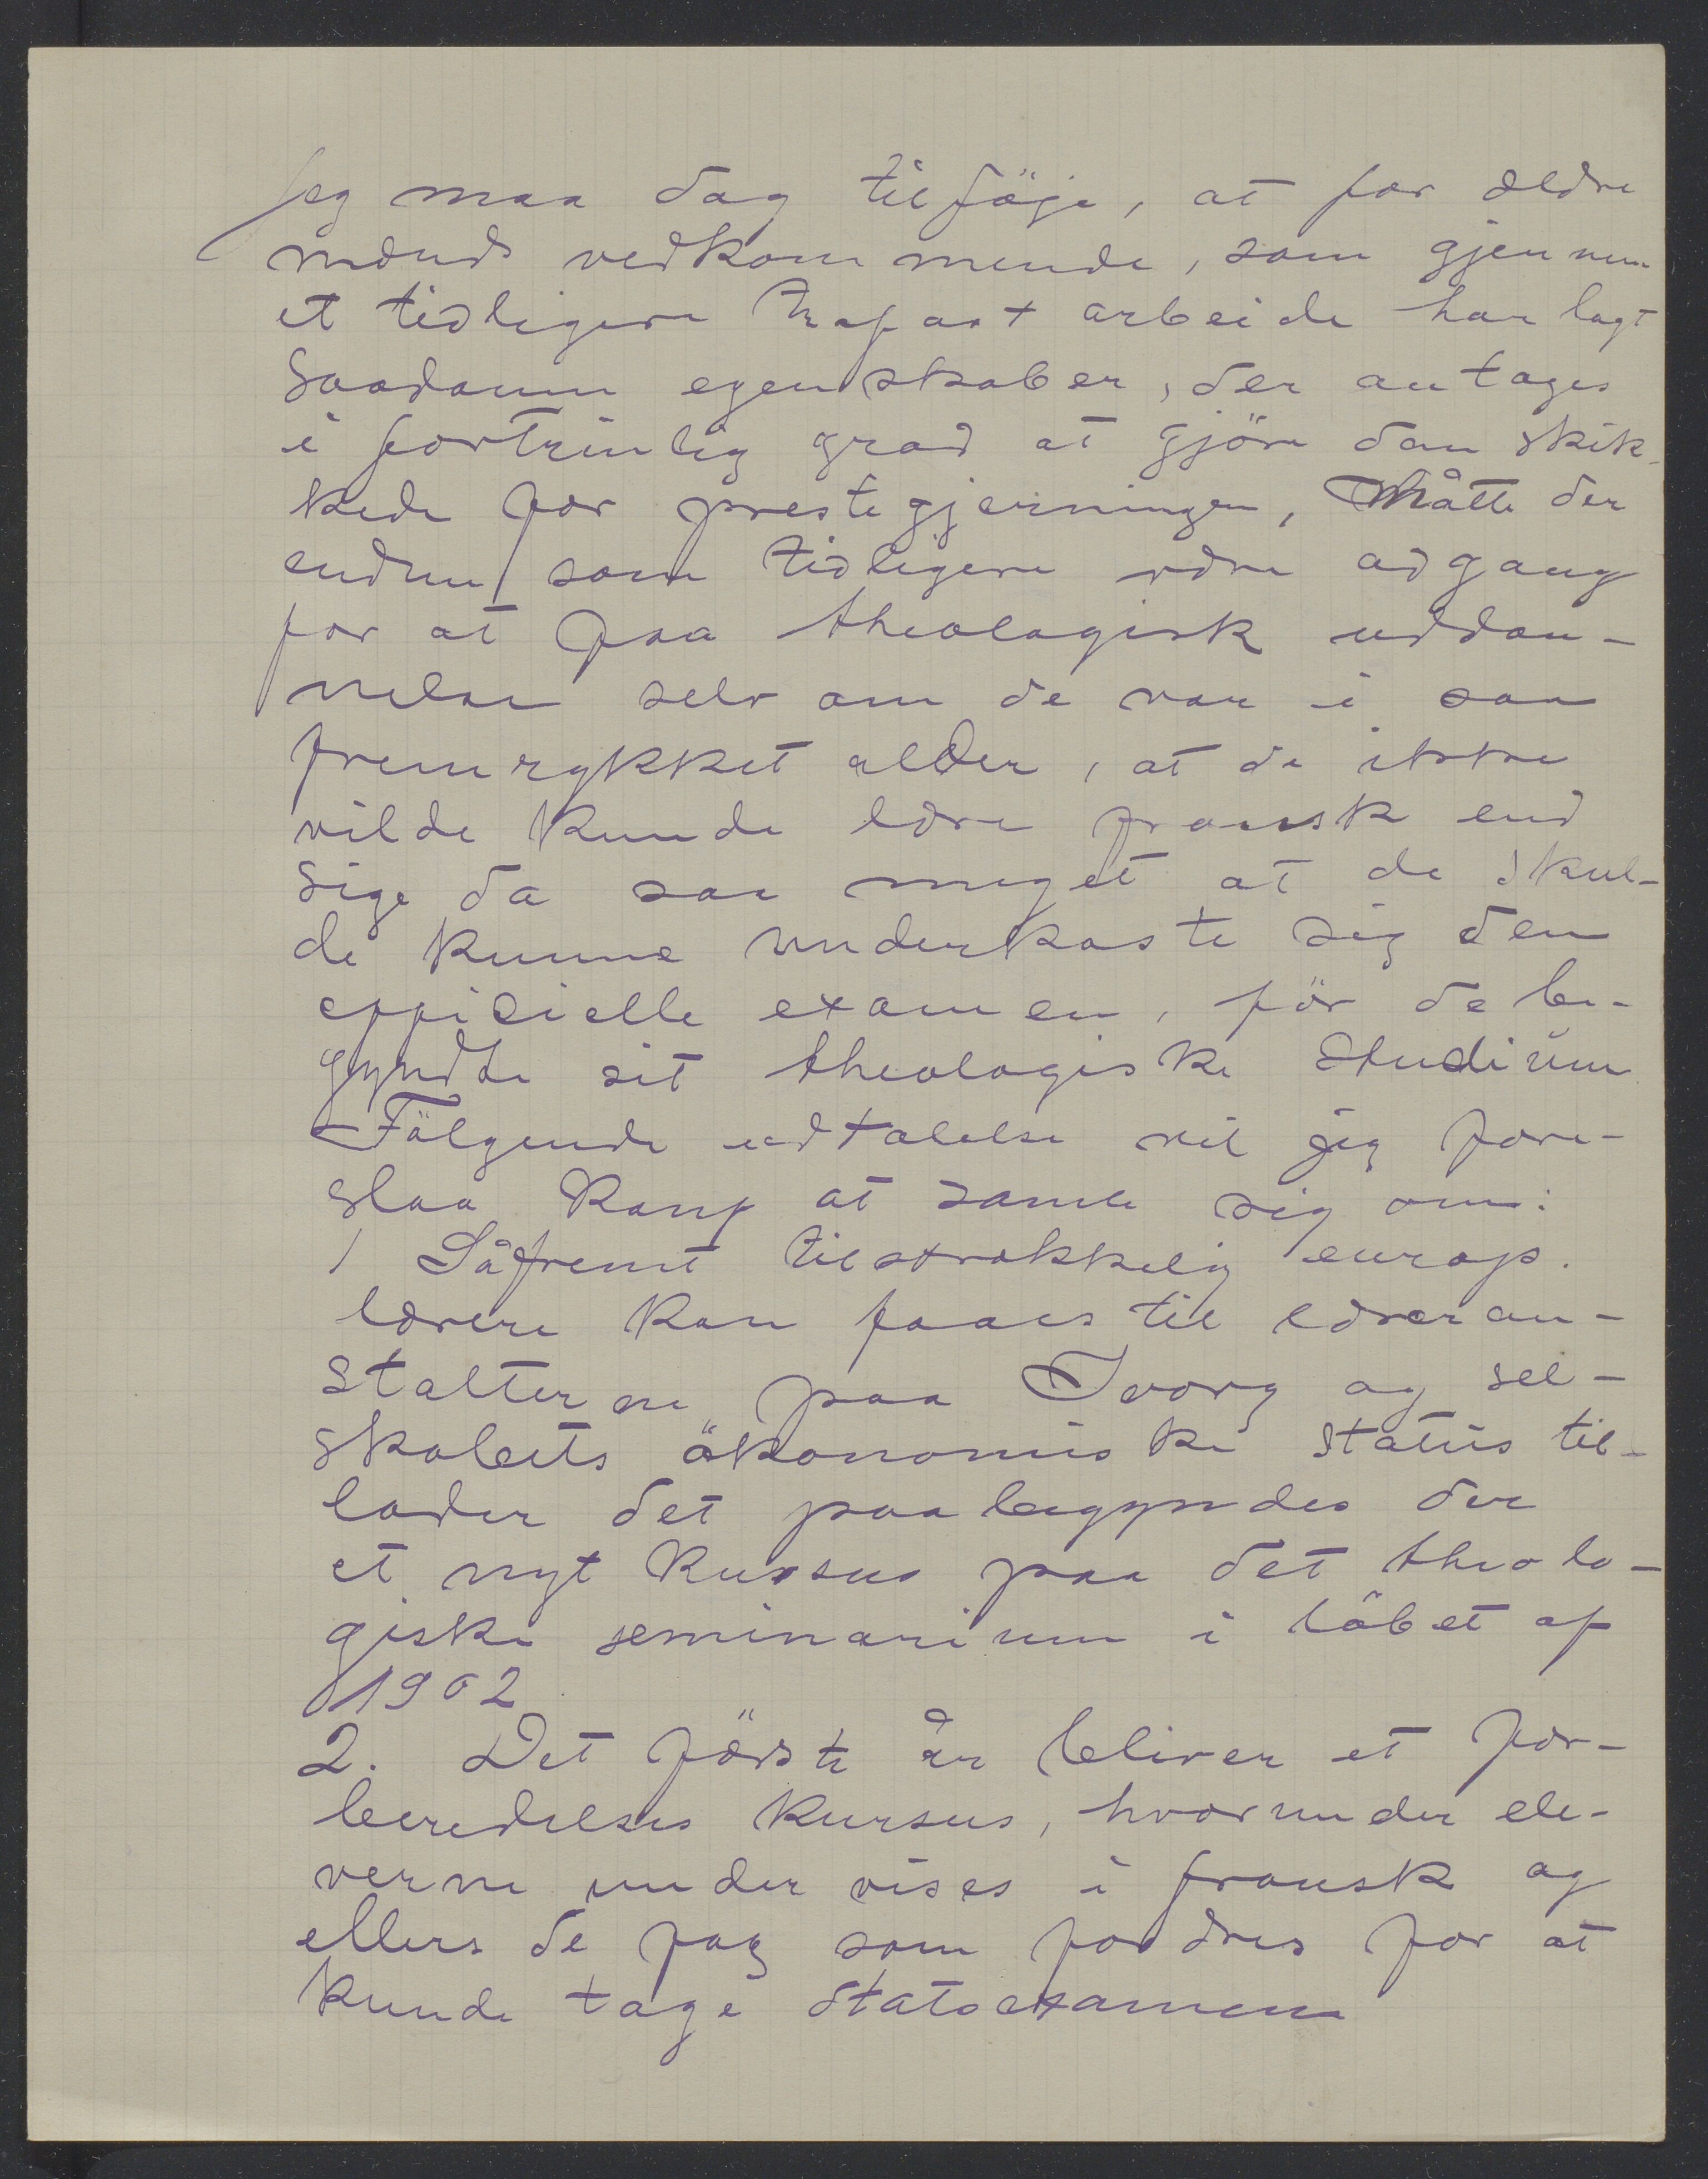 Jeg maa dog tilföje, at for ældre
mænds vedkommende, som gjennem
et tidligere trofast arbeide har lagt
saadanne egenskaber, der antages
i fortrinlig grad at gjöre dem skik-
kede for prestegjerningen, Måtte der
endnu som tidligere være adgang
for at faa theologisk uddan-
nelse selv om de var i saa
fremrykket alder, at de ikke
vilde kunde lære fransk end
sige da saa meget at de skul-
de kunne underkaste sig den
officielle examen, för de be-
gyndte sit theologiske Studium
Fölgende udtalelse vil jeg fore-
slaa Konf at samle sig om:
1 Såfremt tilstrækkelig europ.
lærere kan faaes til læreran-
stalterne paa Ivory og sel-
skabets ökonomiske status til-
lader det paabegyndes der
et nyt kursus paa det theolo-
giske seminarium i löbet af
1902
2. Det förste år bliver et for-
beredelses kursus, hvorunder ele-
verne undervises i fransk og
ellers de fag som fordres for at
kunde tage statsexamen